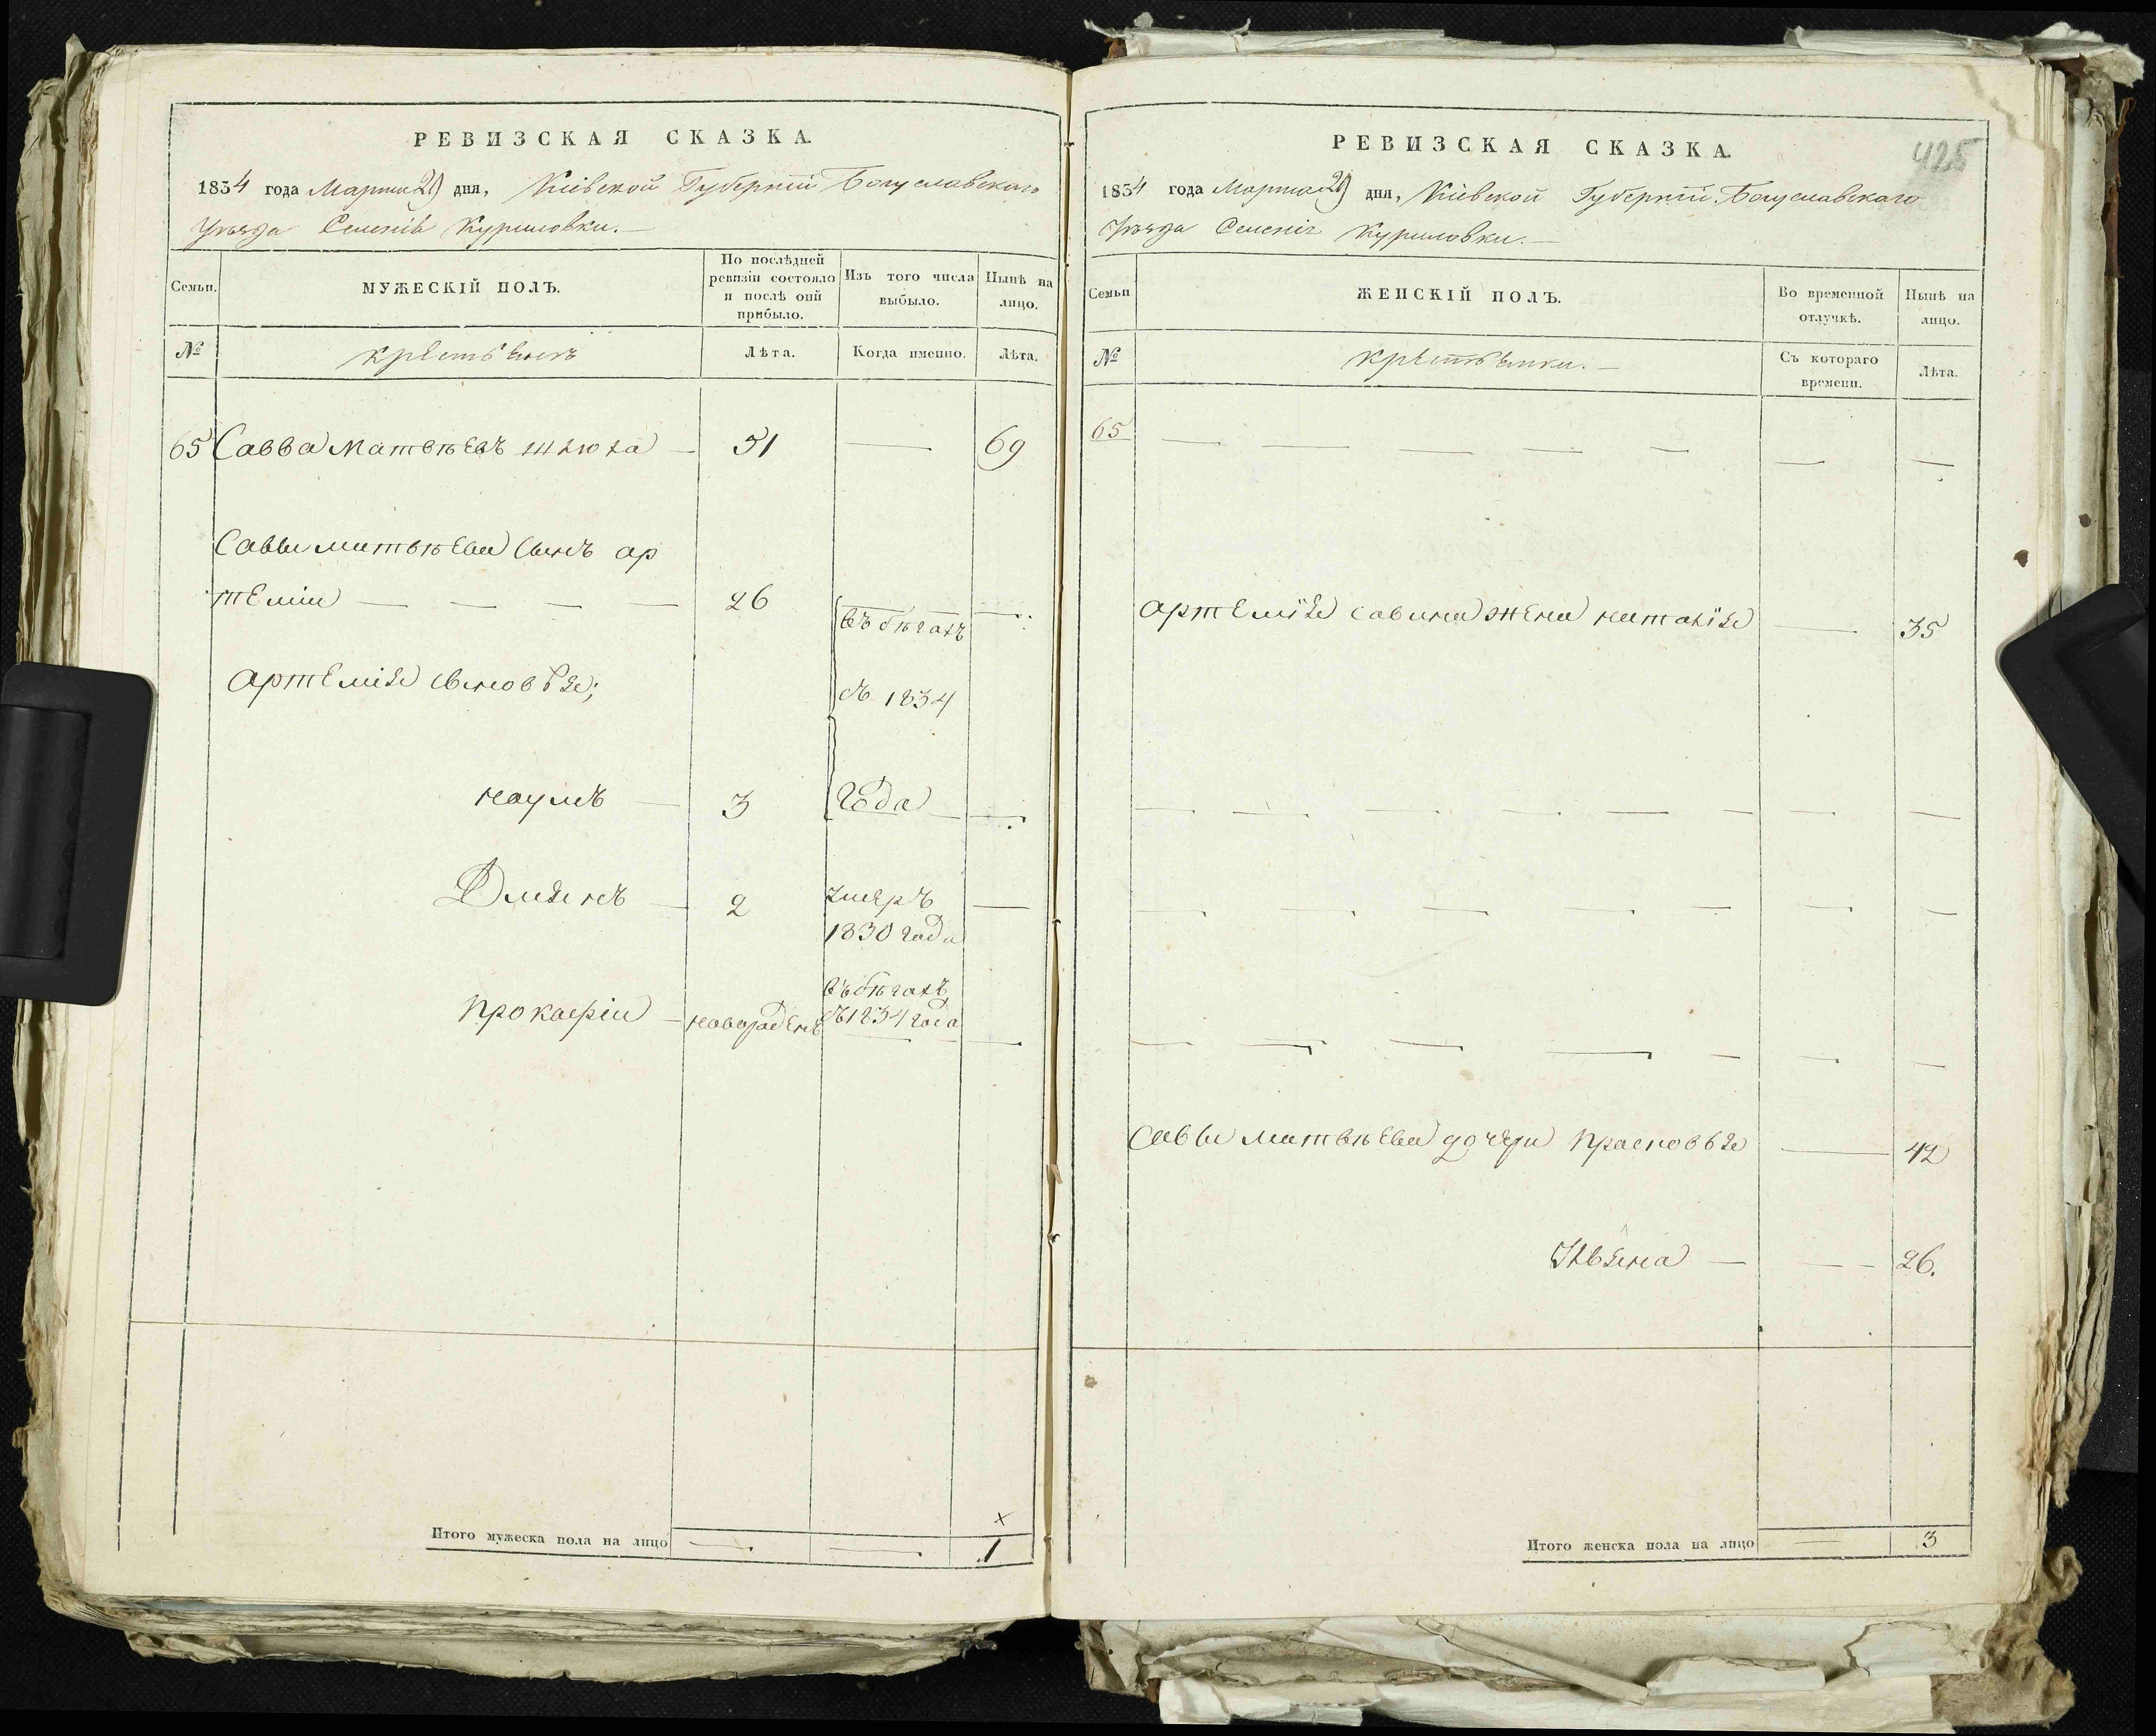 РЕВИЗСКАЯ СКАЗКА.
1834 года Марта 29 дня, Кіевской Губерніи Богуславскаго
Уѣзда Селенія Куриловки.
Семьи. МУЖЕСКІЙ ПОЛЪ. По послѣдней ревизіи состояло и послѣ оий прибыло. Изъ того числа выбыло. Нынѣ на лицо.
№ крѣстьянъ Лѣта. Когда именно. Лѣта.
65 Савва Матвѣевъ — 51 — 69
Саввы Матвѣева сынъ ар
темій — — — — 26 въ бѣгахъ —
Артемія сыновья; съ 1834
Наумъ — 3 года —
Дмянъ — 2 умеръ —
1830 года
въ бѣгахъ
Прокофій — новорожденъ съ 1834 года —
Итого мужеска пола на лицо — — 1
РЕВИЗСКАЯ СКАЗКА.
425
1834 года Марта 29 дня, Кіевской Губерніи Богуславскаго
Уѣзда Селенія Куриловки.
Семьи ЖЕНСКІЙ ПОЛЪ. Во временной отлучкѣ. Нынѣ на лицо.
№ крѣстьянки. Съ котораго времени. Лѣта.
65 — — — — — — —
Артемія Савина жена Наталія — 35
Саввы Матвѣева дочери Прасковья — 42
Ульяна — — 26.
Итого женска пола на лицо — 3